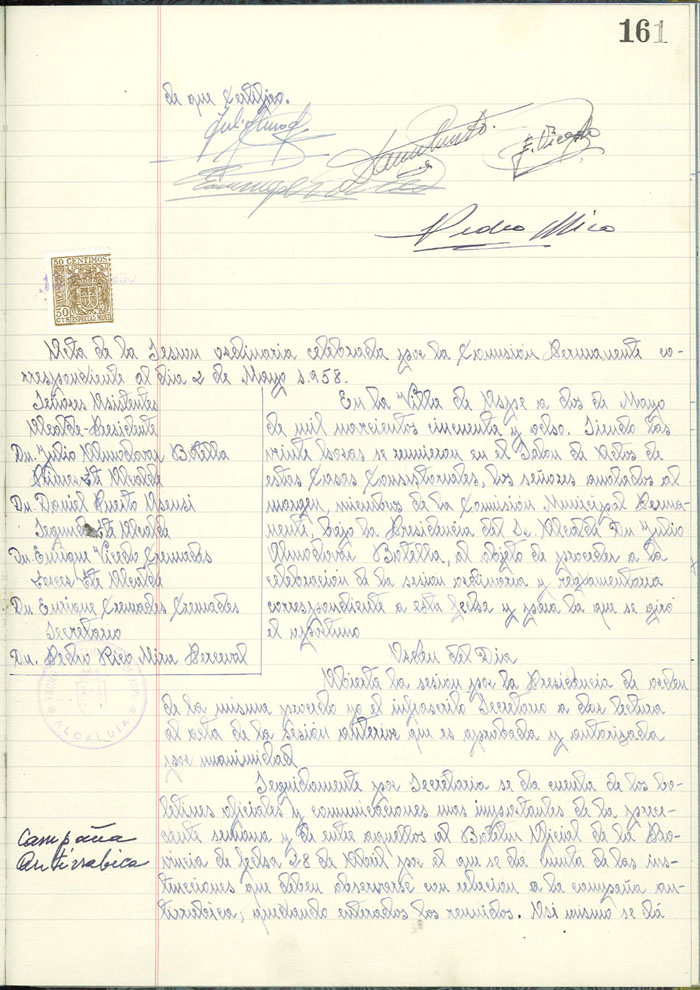 161
de que certifico.
Pedro Mira
50 CENTIMOS
50
CTS ESPECIAL MOVIL
Acta de la Sesion ordinaria celebrada por la Comisión Permanente co-
rrespondiente al dia 2 de Mayo 1.958.
Señores Asistentes
Alcalde-Presidente
Dn. Julio Almodovar Botella
Primer Tte Alcalde
Dn. Daniel Puerto Asensi
Segundo Tte Alcalde
Dn. Enrique Vicedo Cremades
Tercer Tte Alcalde
Dn. Enrique Cremades Cremades
Secretario
Dn. Pedro Rico Mira Berenval
En la Villa de Aspe a dos de Mayo
de mil novecientos cincuenta y ocho. Siendo las
veinte horas se reunieron en el Salon de Actos de
estas Casas Consistoriales, los señores anotados al
margen, miembros de la Comisión Municipal Perma-
nente, bajo la Presidencia del Sr. Alcalde Dn. Julio
Almodovar Botella, al objeto de proceder a la
celebracion de la sesion ordinaria y reglamentaria
correspondiente a esta fecha y para la que se giró
el oportuno
Orden del Dia
Abierta la sesion por la Presidencia de orden
de la misma procedo yo el infrascrito Secretario a dar lectura
al acta de la Sesión anterior que es aprobada y autorizada
por unanimidad
Seguidamente por Secretaria se da cuenta de los bo-
letines oficiales y comunicaciones mas importantes de la prece-
dente semana y de entre aquellos al Boletin Oficial de la Pro-
vincia de fecha 28 de Abril por el que se dá cuenta de las ins-
trucciones que deben observarse con relacion a la campaña an-
tirrabica, quedando enterados los reunidos. Asi mismo se dá
Campaña
Antirrabica
ALCALDIA